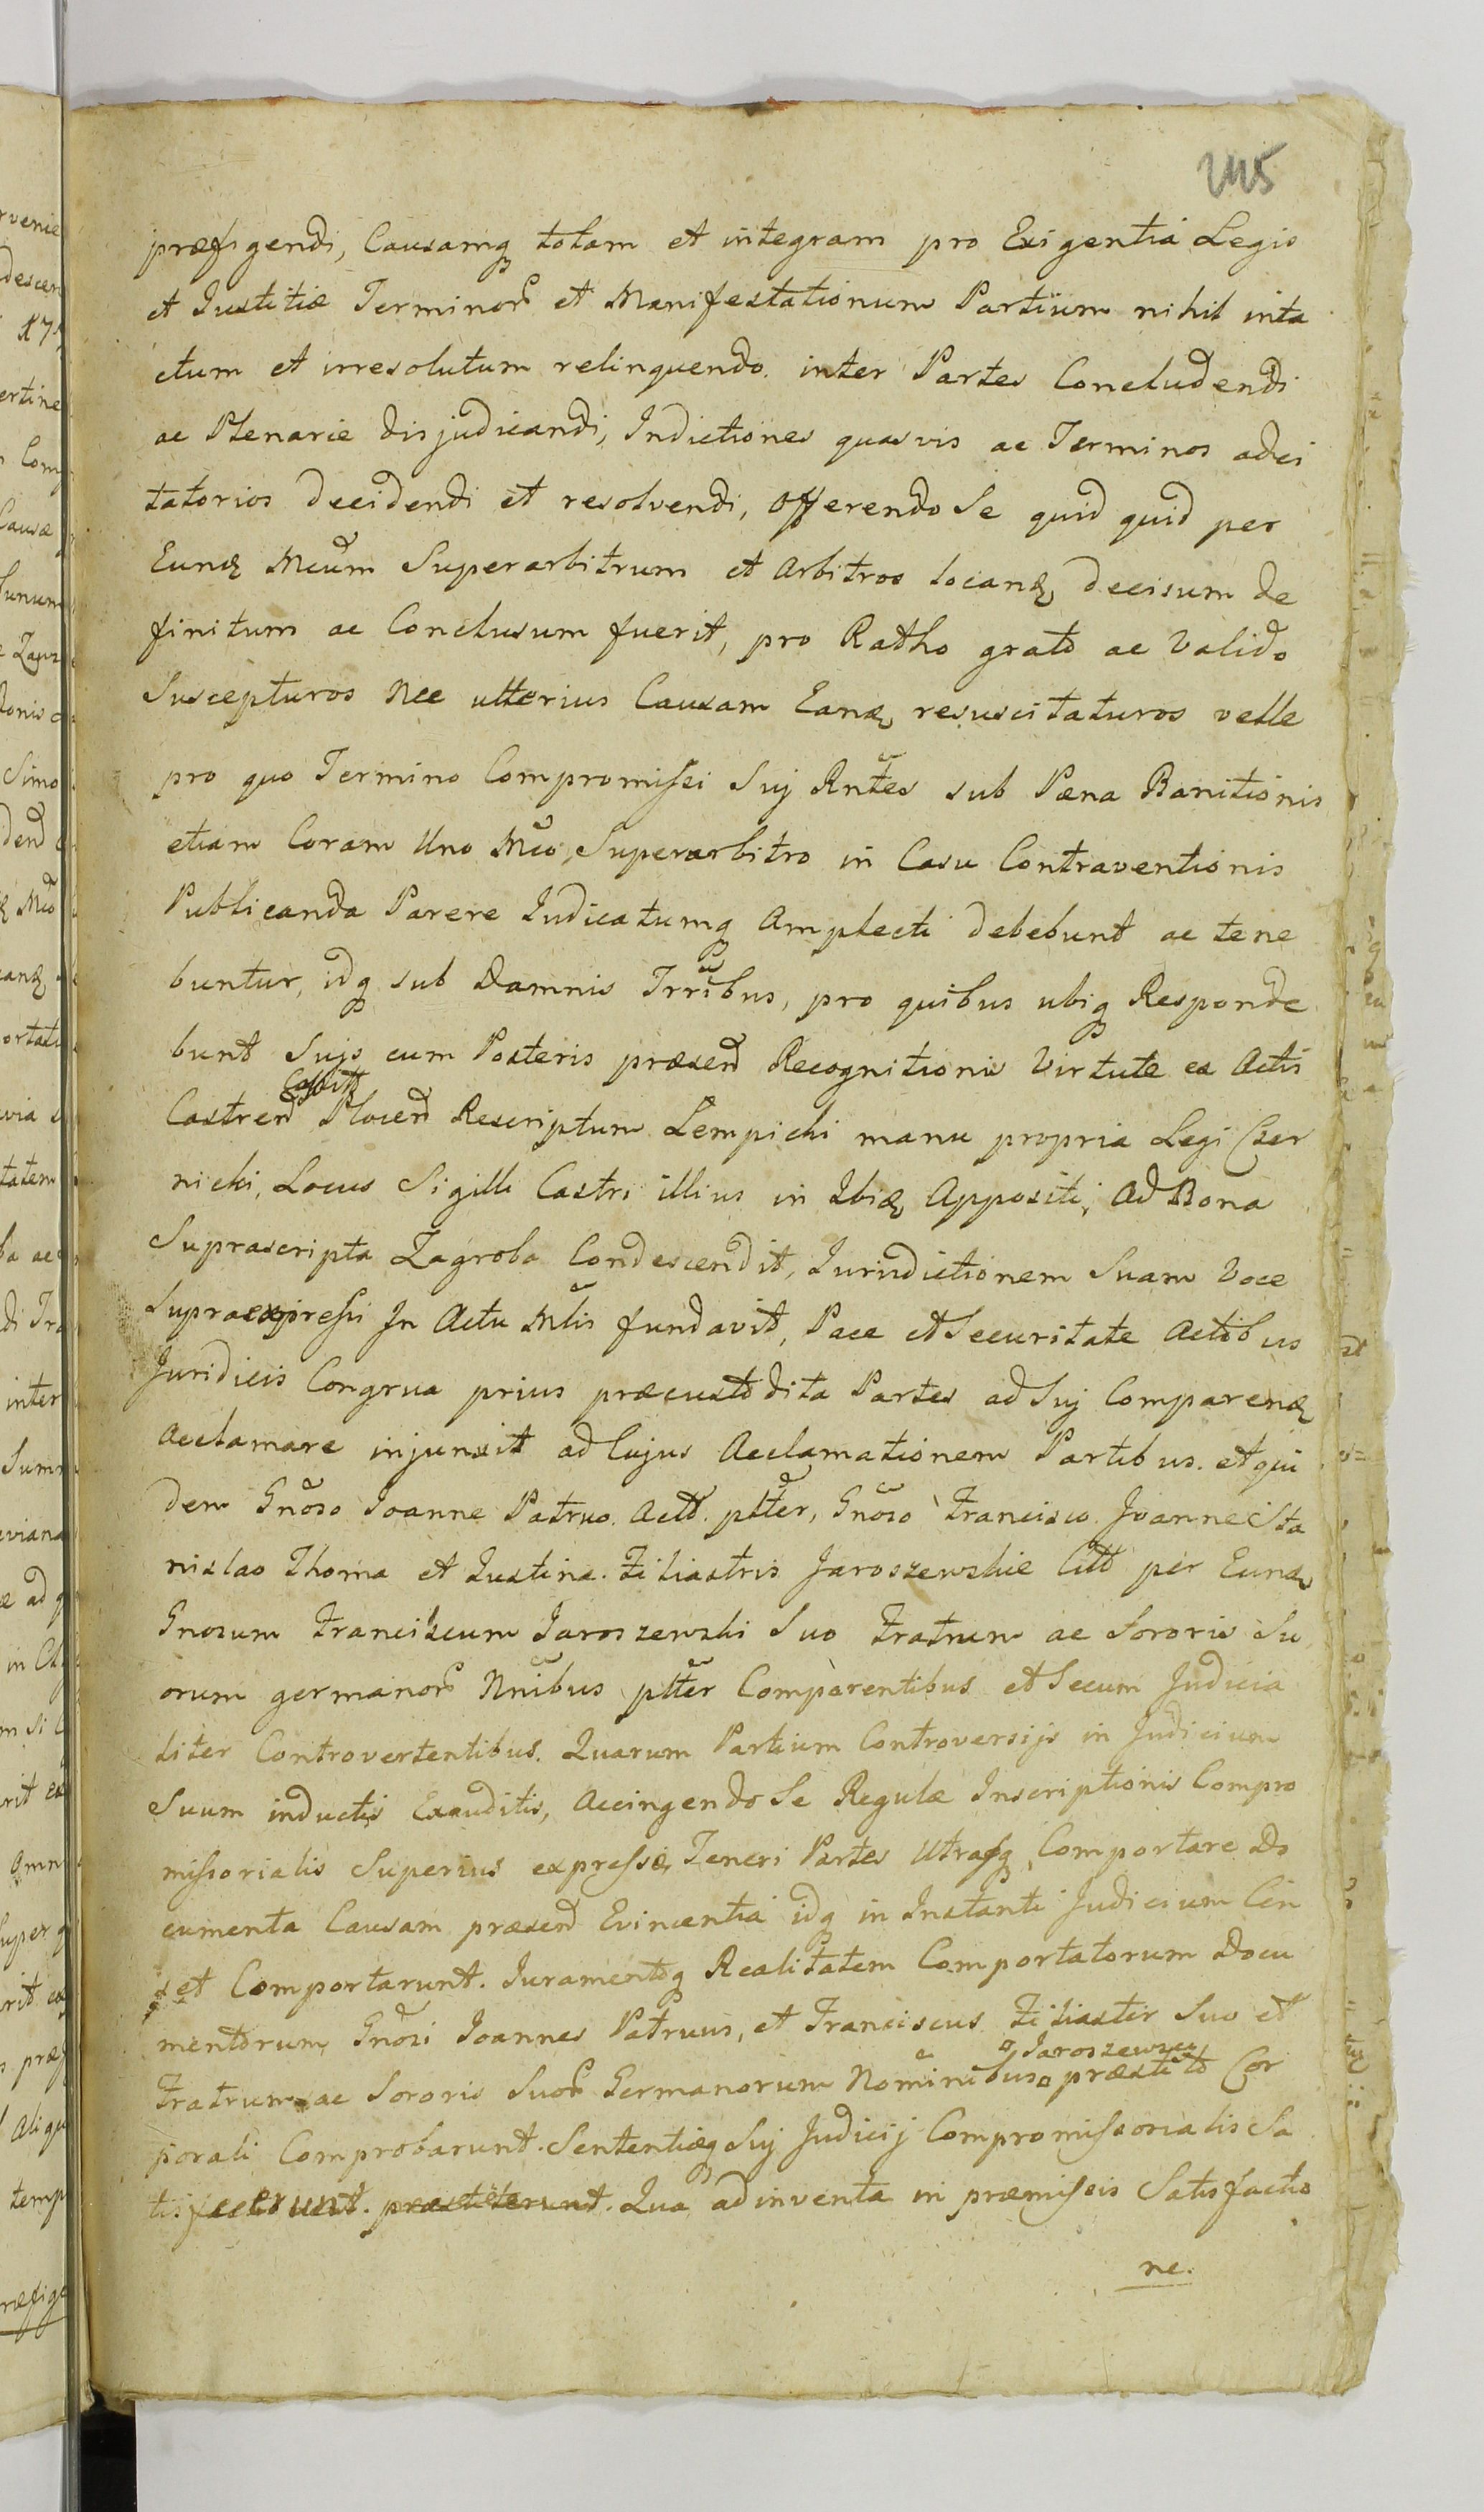 245
præfigendi, Causamq totam et integram pro Exigentia Legis
et Iustitiæ Terminor et Manifestationum Partium nihil inta
ctum et irresolutum relinquendo. inter Partes Concludendi
ac Plenarie disjudicandi, Indictiones quasvis ac Terminos adci
tatorios decidendi et resolvendi, offerendo Se quid quid per
Eund Mcum Superarbitrum et Arbitros locand, decisum de
finitum ac Conclusum fuerit, pro Ratho grato ac Valido
Suscepturos Nec ulterius Causam Eand, resuscitaturos velle
pro quo Termino Compromissi Suj Rntes sub Pæna Banitionis
etiam Coram Uno Mco, Superarbitro in Casu Contraventionis
Publicanda Parere Iudicatumq Amplecti debebunt ac tene
buntur, idq sub Damnis Trribus, pro quibus ubiq Responde
bunt Sujs cum Posteris præsend Recognitionis Virtute ex Actis
Castren Plocen Rescriptum Lempicki manu propria Legi Czer
nicki, Locus Sigilli Castri illius in Ibid, Appositi, Ad Bona
Suprascripta Zagroba Condescendit, Iurisdictionem Suam Voce
Supraexpressi In Actu Mlis fundavit, Pace et Securitate Actibus
Juridicis Congrua prius præcustodita Partes ad Suj Comparend
Acclamare injunxit ad Cujus Acclamationem Partibus. et qui
dem Gnoso Ioanne Patruo. Actt. ptter, Gnoso Francisco Joanne Sta
nislao Thoma et Iustina. Filiastris Jaroszewskie Citt per Eund
Gnosum Franciscum Jaroszewski Suo Fratrum ac Sororis Su
orum germanor Nnibus ptter Comparentibus et Secum Judicia
liter Controvertentibus. Quarum Partium Controversijs in Judicium
Suum inductis Exauditis, Accingendo Se Regulæ Inscriptionis Compro
missorialis Superius expressæ, Teneri Partes Utrasq, Comportare Do
cumenta Causam præsend Evincentia idq in Instanti Judicium Cen
set Comportarunt. Iuramentoq Realitatem Comportatorum Docu
mentorum Gnosi Ioannes Patruus, et Franciscus Filiaster Suo et
Jaroszewscy
Fratrum ac Sororis Suor Germanorum Nominibus præstito Cor
porali Comprobarunt. Sententiæq Suj Judicij Compromissorialis Sa
tisfecerunt. præstiterunt. Qua adinventa in præmissis Satisfactio
ne.